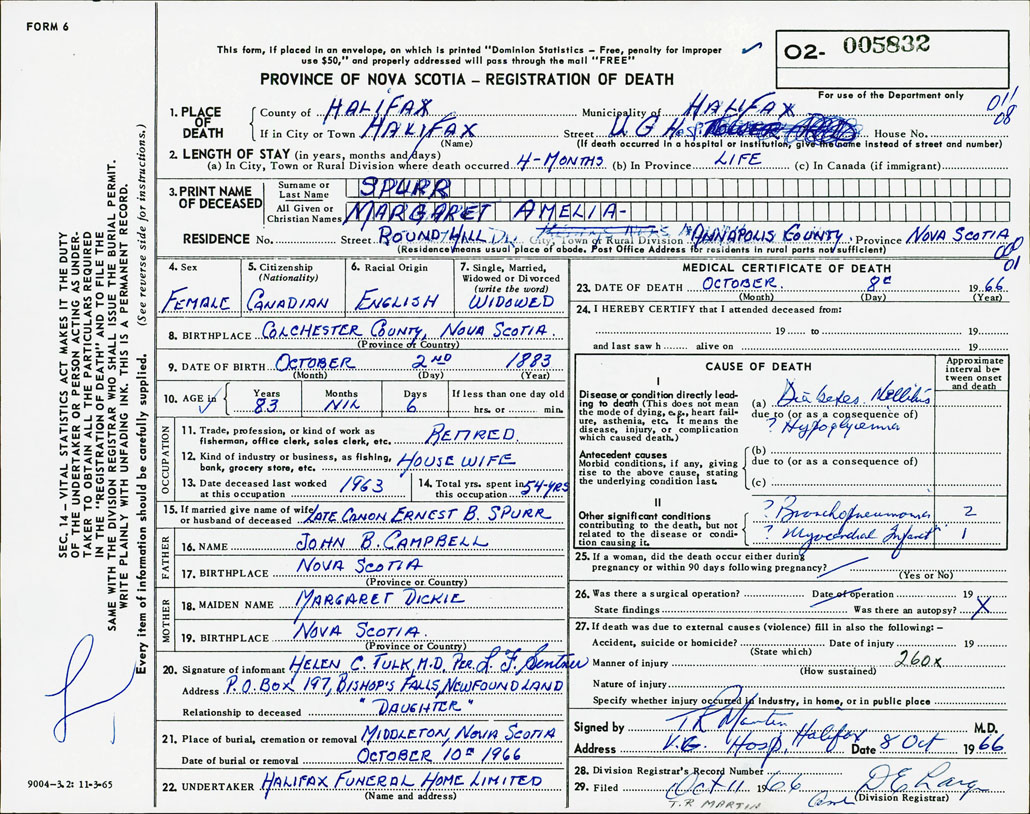 FORM 6
This form, if placed in an envelope, on which is printed "Dominion Statistics – Free, penalty for improper
use $50," and properly addressed will pass through the mail "FREE"
02- 005832
PROVINCE OF NOVA SCOTIA – REGISTRATION OF DEATH
For use of the Department only
011
08
1. PLACE OF DEATH
County of HALIFAX Municipality of HALIFAX
If in City or Town HALIFAX Street V G Hosp. House No.
(Name) (If death occurred in a hospital or institution, give the name instead of street and number)
2. LENGTH OF STAY (in years, months and days)
(a) In City, Town or Rural Division where death occurred 4-MONTHS (b) In Province LIFE (c) In Canada (if immigrant)
3. PRINT NAME OF DECEASED
Surname or Last Name SPURR
All Given or Christian Names MARGARET AMELIA-
RESIDENCE No. Street ROUND HILL City, Town or Rural Division ANNAPOLIS COUNTY Province NOVA SCOTIA
(Residence means usual place of abode. Post Office Address for residents in rural ports not sufficient)
000
01
4. Sex FEMALE
5. Citizenship (Nationality) CANADIAN
6. Racial Origin ENGLISH
7. Single, Married, Widowed or Divorced (write the word) WIDOWED
8. BIRTHPLACE COLCHESTER COUNTY, NOVA SCOTIA.
(Province or Country)
9. DATE OF BIRTH OCTOBER 2ND 1883
(Month) (Day) (Year)
10. AGE in Years 83 Months NIL Days 6 If less than one day old hrs. or min.
OCCUPATION
11. Trade, profession, or kind of work as fisherman, office clerk, sales clerk, etc. RETIRED.
12. Kind of industry or business, as fishing, bank, grocery store, etc. HOUSE WIFE
13. Date deceased last worked at this occupation 1963
14. Total yrs. spent in this occupation 54-YRS
15. If married give name of wife or husband of deceased LATE CANON ERNEST B. SPURR
FATHER
16. NAME JOHN B. CAMPBELL
17. BIRTHPLACE NOVA SCOTIA
(Province or Country)
MOTHER
18. MAIDEN NAME MARGARET DICKIE
19. BIRTHPLACE NOVA SCOTIA.
(Province or Country)
20. Signature of informant HELEN C. TULK, M.D. PER. L. F. Sentner
Address P.O. BOX 197, BISHOP'S FALLS, NEWFOUNDLAND
Relationship to deceased "DAUGHTER"
21. Place of burial, cremation or removal MIDDLETON, NOVA SCOTIA
Date of burial or removal OCTOBER 10th 1966
22. UNDERTAKER HALIFAX FUNERAL HOME LIMITED
(Name and address)
MEDICAL CERTIFICATE OF DEATH
23. DATE OF DEATH OCTOBER. 8th 1966
(Month) (Day) (Year)
24. I HEREBY CERTIFY that I attended deceased from:
19 to 19
and last saw h alive on 19
CAUSE OF DEATH
Approximate interval between onset and death
I
Disease or condition directly leading to death (This does not mean the mode of dying, e.g., heart failure, asthenia, etc. It means the disease, injury, or complication which caused death.)
(a) Diabetes Mellitus
due to (or as a consequence of)
? Hypoglycemia
Antecedent causes
Morbid conditions, if any, giving rise to the above cause, stating the underlying condition last.
(b)
due to (or as a consequence of)
(c)
II
Other significant conditions contributing to the death, but not related to the disease or condition causing it.
? Bronchopneumonia 2
? Myocardial Infarct 1
25. If a woman, did the death occur either during pregnancy or within 90 days following pregnancy?
(Yes or No)
26. Was there a surgical operation? Date of operation 19
State findings Was there an autopsy? X
27. If death was due to external causes (violence) fill in also the following: –
Accident, suicide or homicide? Date of injury 19
(State which)
Manner of injury 260x
(How sustained)
Nature of injury
Specify whether injury occurred in industry, in home, or in public place
Signed by T R Martin M.D.
Address V.G. Hosp, Halifax Date 8 Oct 1966
28. Division Registrar's Record Number
29. Filed Oct 11 1966
(Division Registrar)
T.R MARTIN
SEC. 14 – VITAL STATISTICS ACT MAKES IT THE DUTY
OF THE UNDERTAKER OR PERSON ACTING AS UNDER-
TAKER TO OBTAIN ALL THE PARTICULARS REQUIRED
IN THE "REGISTRATION OF DEATH" AND TO FILE THE
SAME WITH THE DIVISION REGISTRAR WHO SHALL ISSUE THE BURIAL PERMIT.
WRITE PLAINLY WITH UNFADING INK. THIS IS A PERMANENT RECORD.
Every item of information should be carefully supplied. (See reverse side for instructions.)
9004-3.2: 11-3-65